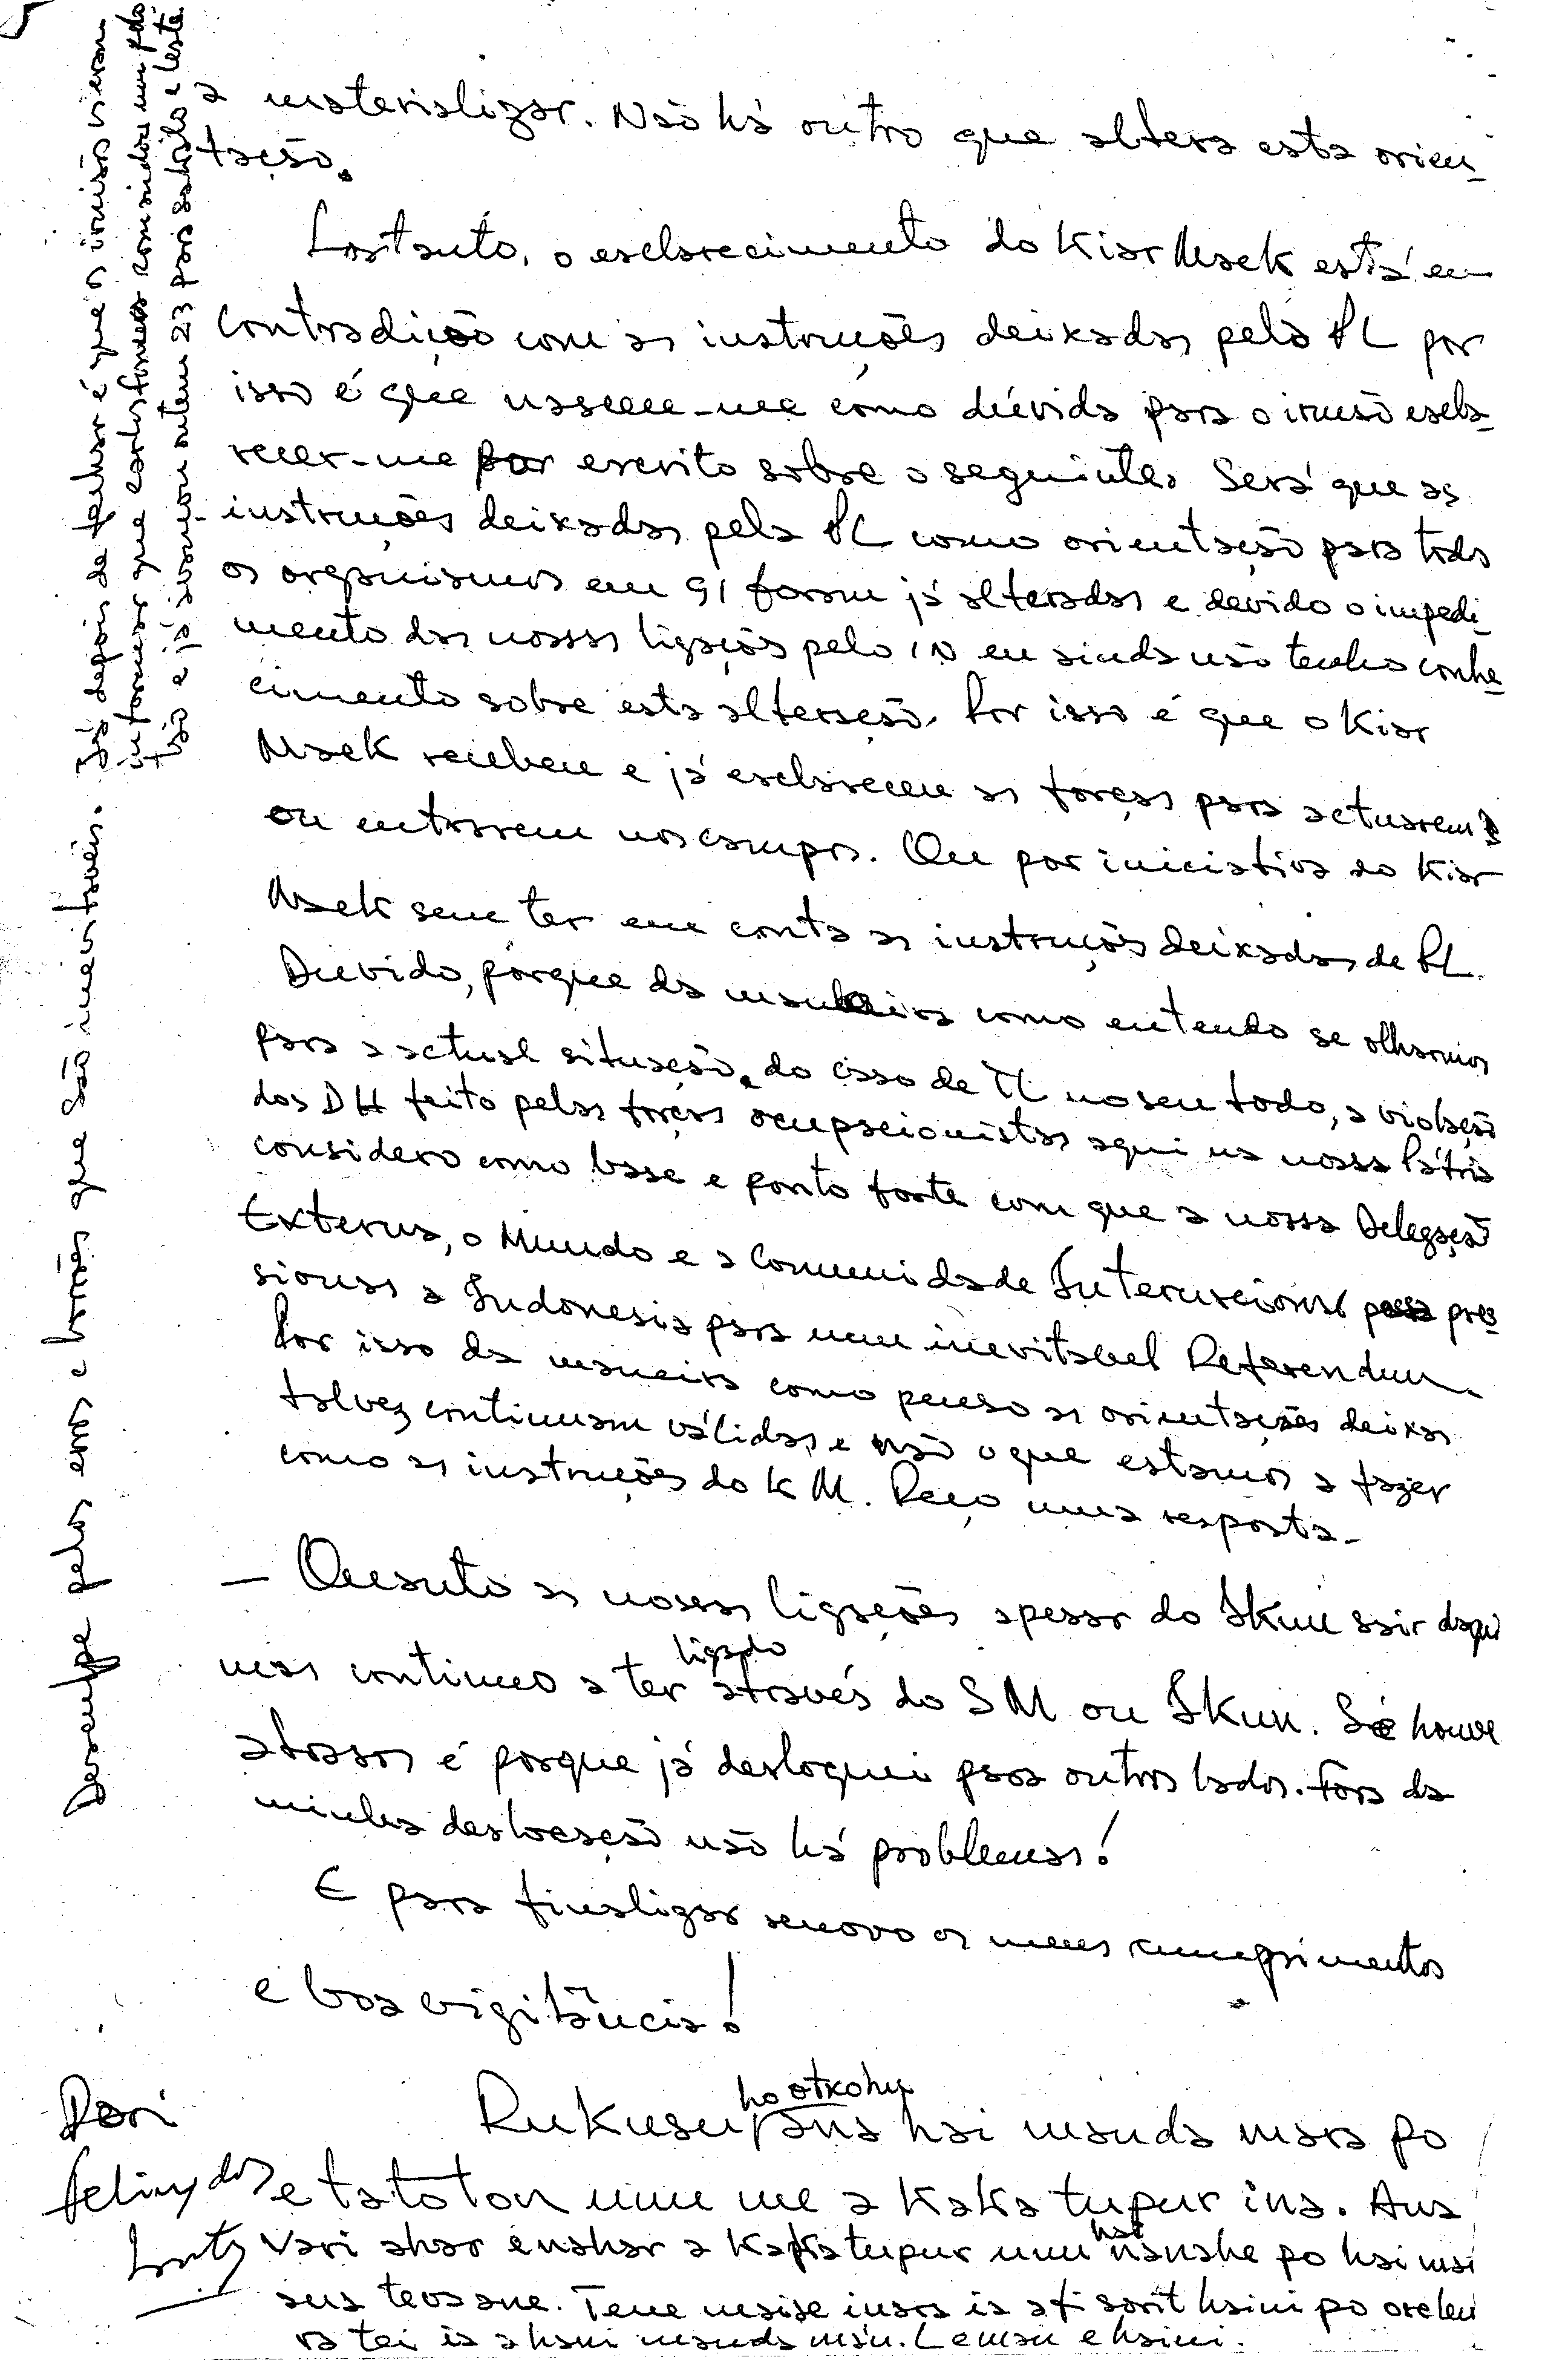 a materializar. Não há outro que altera esta orien-
tação.
Portanto, o esclarecimento do Kiar Maek está em
contradição com as instruções deixadas pelo PL por
isso é que nasceu-me como dúvida para o irmão escla-
recer-me por escrito sobre o seguinte. Será que as
instruções deixadas pela PL como orientação para todos
os organismos em 91 foram já alteradas e devido o impedi-
mento das nossas ligações pelo IN eu ainda não tenho conhe-
cimento sobre esta alteração. Por isso é que o Kiar
Maek recebeu e já esclareceu as forças para actuarem
ou entrarem nos campos. Ou por iniciativa do Kiar
Maek sem ter em conta as instruções deixadas de PL.
Duvido, porque da maneira como entendo se olharmos
para a actual situação do caso de TL no seu todo, a violação
dos DH feito pelas forças ocupacionistas aqui na nossa Pátria
considero como base e ponto forte com que a nossa Delegação
Externa, o Mundo e a Comunidade Internacional pres-
sionar a Indonesia para um inevitabel Referendum.
Por isso da maneira como penso as orientações deixas
talvez continuam válidas e não o que estamos a fazer
como as instruções do K M. Peço uma resposta.
— Quanto as nossas ligações apesar do Ikun sair daqui
mas continuo a ter ligado através do SM ou Ikun. Se houve
atrasos é porque já desloquei para outros lados. Fora da
minha deslocação não há problemas!
E para finalizar renovo os meus cumprimentos
e boa vigilância!
Rukusu ho otxohu ana hai manda mara po
e tatoton umu me a kaka tupur ina. Ana
vari ahar enahar a kaka tupur umu hat nanahe po hai mai
ana tevaane. Tene maise inara ia afi sarit haini po
ra tei ia a hani manda mau. Lemau e haini.
Desculpe pelos erros e borrões que são inevitáveis. Já depois de fechar é que os irmãos vieram
informar que estes foram
tão e já avançou ontem 23 para